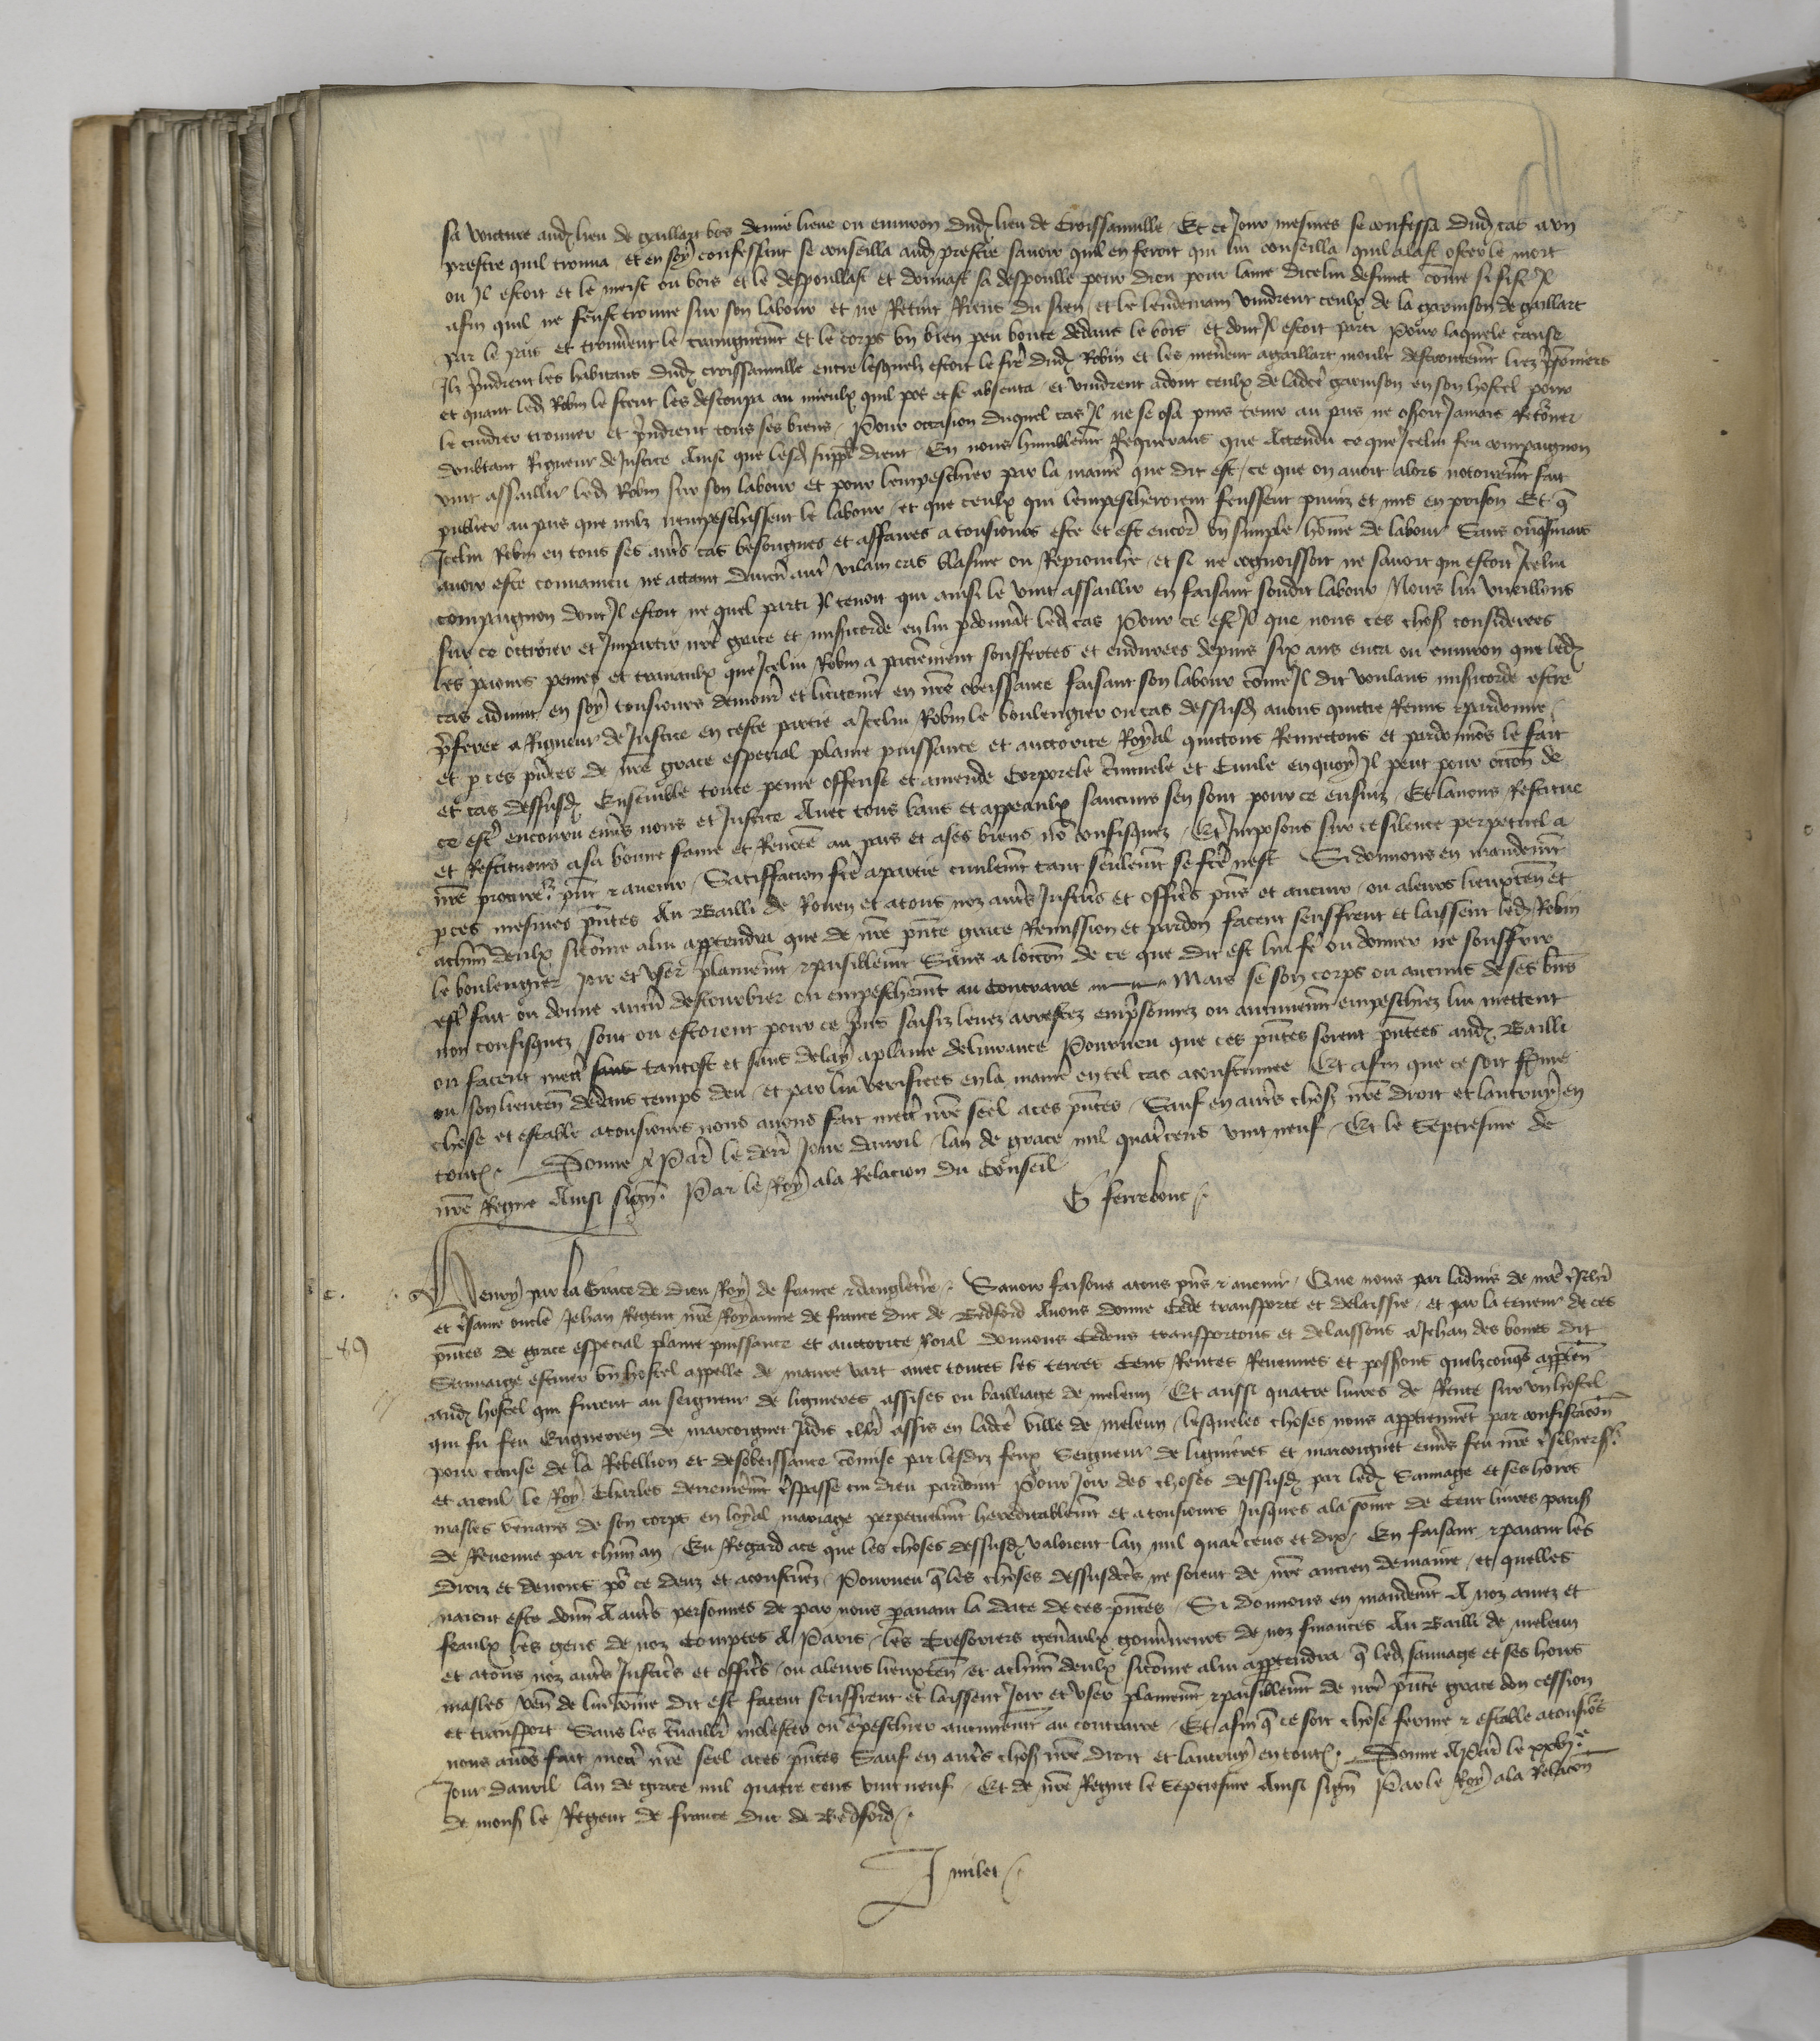 sa voicture aud lieu de gaillart bos demie lieue ou environ dud lieu de Croissanville Et ce Jour mesmes se confessa dud cas a un
prestre quil trouva et en soy confessant se conseilla aud prestre savoir quil en feroit qui lui conseilla quil alast oster le mort
ou Il estoit et le meist ou bois et le despoullast et donnast sa despoulle pour dieu pour lame dicelui defunct come si fist Il
afin quil ne feust trouve sur son labour et ne Retint Riens du sien et le lendemain vindrent ceulx de la garnison de gaillart
par le pais et trouverent le et le corps un bien peu boute dedans le bois et dont Il estoit parti Pour laquele cause
Ilz prindrent les habitans dud croissanville entre lesquelz estoit le frere dud Robin et les menerent a gaillart moult liez prisonniers
et quant led Robin le sceut les descoupa au mieulx quil pot et se absenta et vindrent adont ceulx de ladte garnison en son hostel pour
le cuidier trouver et prindrent tous ses biens Pour occasion duquel cas Il ne se osa puis tenir au pais ne oseroit Jamais Retourner
doubtant Rigueur de Justice Ainsi que lesd suppl dient En nous humblemt Requerans que Attendu ce que Icelui feu compaignon
vint assaillir led Robin sur son labour et pour lempeschier par la maniere que dit est ce que on avoit alors notoiremt fait
publier au pais que nulz nempeschassent le labour et que ceulx qui lempescheroient feussent puniz et mis en prison Et q
Icelui Robin en tous ses autres cas besongnes et affaires a tousiours este et est encore un simple home de labour Sans oncqsmais
avoir este convaincu ne attaint daucun autre vilain cas blasme ou Reprouche et si ne cognoissoit ne savoit qui estoit Icelui
compaignon dont Il estoit ne quel parti Il tenoit qui ainsi le vint assaillir en faisant sondit labour Nous lui vueillions
sur ce octroier et Impartir nre grace et misericorde en lui pdonnant led cas Pour ce est Il que nous ces choses considerees
les paours peines et travaulx que Icelui Robin a paciemment souffertes et endurees depuis six ans enca ou environ que led
cas advint en soy tousiours demourer et licitemt en nre obeissance faisant son labour come Il dit voulans misericorde estre
preferee a Rigueur de Justice en ceste partie a Icelui Robin le boulengier ou cas dessusd avons quicte Remis et pardonne
et p ces pntes de nre grace especial plaine puissance et auctorite Royal quictons Remectons et pardonnons le fait
et cas dessusd Ensemble toute peine offense et amende Corporele criminele et Civile en quoy Il peut pour occon de
ce estre encouru envers nous et Justice Avec tous bans et appeaulx saucuns sen sont pour ce ensuiz Et lavons Restitue
et Restituons a sa bonne fame et Renomee au pais et a ses biens no confisquez Et Imposons sur ce silence perpetuel a
nre procureur pnt et avenir Satisfacion fte a partie civilemt tant seulemt se fte nest Si donnons en mandemt
p ces mesmes pntes Au Bailli de Rouen et a tous noz autres Justiciers et officiers pns et avenir ou a leurs lieuxten et
a chun deulx sicome a lui appartendra que de nre pnte grace Remission et pardon facent seuffrent et laissent led Robin
le boulengier Joir et User plainemt et paisiblemt Sans a loccon de ce que dit est lui fe ou donner ne souffrir
estre fait ou donne aucun destourbier ou empeschemt au contraire Mais se son corps ou aucuns de ses biens
non confisquez sont ou estoient pour ce pris saisiz levez arrestez emprisonnez ou autrement empeschiez lui mettent
ou facent mettre sans tantost et sans delay a plaine delivrance Pourveu que ces pntes soient pntees aud Bailli
ou son lieuten dedans temps deu et par lui verifiees en la maniere en tel cas acoustumee Et afin que ce soit ferme
chose et estable a tousiours nous avons fait mettre nre seel a ces pntes Sauf en autres choses nre droit et lautruy en
toutes Donne A Paris le derr Jour davril lan de grace mil quatre cens vint neuf Et le Septiesme de
nre Regne Ainsi signe Par le Roy a la Relacion du Conseil
G ferrebouc
Henry par la Grace de Dieu Roy de france et dangleterre Savoir faisons a tous pns et avenir Que nous par ladvis de nre treschr
et tresame oncle Jehan Regent nre Royaume de france duc de Bedford Avons donne Cede transporte et delaissie et par la teneur de ces
89
pntes de grace especial plaine puissance et auctorite Roial donnons Cedons transportons et delaissons a Jehan des bones dit
Sauvaige escuier un hostel appelle de maure vart avec toutes les terres Cens Rentes Revenues et possessions quelzconqs apparten
aud hostel qui furent au seigneur de lignieres assises ou bailliage de meleun Et aussi quatre livres de Rente sur un hostel
qui fu feu Enguerren de marcoignet Jadis chlr assis en ladte ville de Meleun lesqueles choses nous appartiennent par confiscacon
pour cause de la Rebellion et desobeissance comise par lesdiz feux Seigneur de lignieres et marcoignet envers feu nre treschier s
et aieul le Roy Charles derrenieremt trespasse cui dieu pardoint Pour Joir des choses dessusd par led Sauvage et ses hoirs
masles venans de son corps en loyal mariage perpetuelmt hereditablemt et a tousiours Jusques a la some de Cent livres paris
de Revenue par chun an Eu Regard a ce que les choses dessusd valoient lan mil quatre cens et dix En faisant et paiant les
droiz et devoirs po ce deuz et acoustumez Pourveu q les choses dessusdtes ne soient de nre ancien demaine et quelles
naient este donn A autres personnes de par nous pavant la date de ces pntes Si donnons en mandemt A noz amez et
feaulx les gens de noz Comptes A Paris les Tresoriers generaulx gouverneurs de noz finances Au Bailli de meleun
et a tous noz autres Justiciers et officiers ou a leurs lieuxten et a chun deulx sicome a lui appartendra q led sauvage et ses hoirs
masles ven de lui come dit est facent seuffrent et laissent Joir et User plainemt et paisiblemt de nre pnte grace don cession
et transport Sans les travaillier molester ou empeschier aucunemt au contraire Et afin q ce soit chose ferme et estable a tousiours
nous avons fait mettre nre seel a ces pntes Sauf en autres choses nre droit et lautruy en toutes Donne A Paris le
Jour davril lan de grace mil quatre cens vint neuf Et de nre Regne le Septiesme Ainsi signe Par le Roy a la Relacion
de mons le Regent de france duc de Bedford
J milet